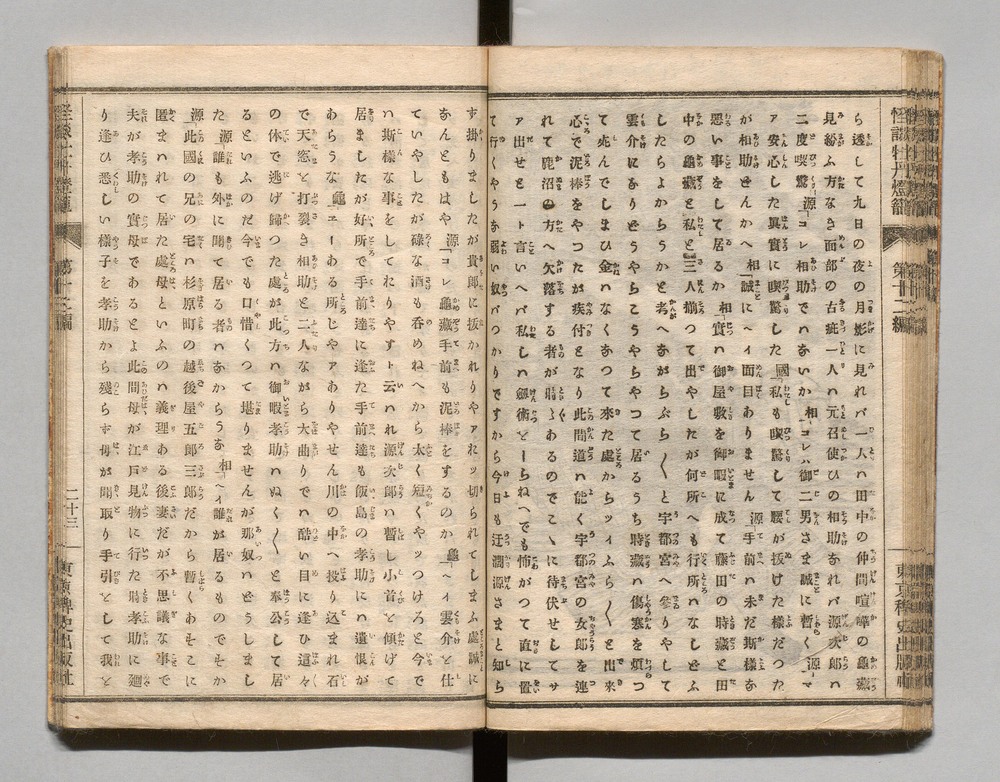 怪談牡丹燈籠　第十二編　東京稗史出版社
ら透して九日の夜の月影に見れバ一人ハ田中の仲間喧嘩の龜藏
見紛ふ方なき面部の古疵一人ハ元召使ひの相助なれバ源次郎ハ
二度喫驚源「コレ相助でハないか相「コレハ御二男さま誠に暫く源「マ
ァ安心した眞實に喫驚した國「私も喫驚して腰が拔けた様だつた
が相助どんかへ相「誠にヘイ面目ありません源「手前ハ未だ斯様な
惡い事をして居るか相「實ハ御屋敷を御暇に成て藤田の時藏と田
中の龜藏と私と三人揃つて出やしたが何所へも行所ハなしどふ
したらよからうかと考へながらぶら〳〵と宇都宮へ參りやして
雲介になりどうやらこうやらやつて居るうち時藏ハ傷寒を煩つ
て死んでしまひ金ハなくなつて來た處からツイふら〳〵と出來
心で泥棒をやつたが疾付となり此間道ハ能く宇都宮の女郎を連
れて鹿沼の方へ欠落する者が時々あるのでこゝに待伏せしてサ
ァ出せと一ト言いへバ私しハ劔術をしらねへでも怖がつて直に置
て行くやうな弱い奴バつかりですから今日も迂濶源さまと知ら
す掛りましたが貴郎に拔かれりやァれッ切られてしまふ處誠に
なんともはや源「コレ龜藏手前も泥棒をするのか龜「ヘイ雲介を仕
ていやしたが碌な酒も呑めねへから太く短くやッつけろと今で
ハ斯様な事をしてわりやすト云ハれ源次郎ハ暫し小首を傾けて
居ましたが好所で手前達に逢た手前達も飯島の孝助にハ遺恨が
あらうな龜「エーある所じやァありやせん川の中へ投り込まれ石
で天窓を打裂き相助と二人ながら大曲りでハ酷い目に逢ひ這々
の体で逃げ歸つた處が此方ハ御暇孝助ハぬく〳〵と奉公して居
るといふのだ今でも口惜くつて堪りませんが那奴ハどうしまし
た源「誰も外に聞て居る者ハなからうな相「ヘイ誰が居るものでそか
源「此國の兄の宅ハ杉原町の越後屋五郎三郎だから暫くあそこに
匿まれて居た處母といふのハ義理ある後妻だが不思議な事で
夫が孝助の實母であるとよ此間母が江戸見物に行た時孝助に廻
り逢ひ悉しい様子を孝助から殘らす母が聞取り手引をして我を
怪談牡丹燈籠　第十二編　二十三　東京稗史出版社